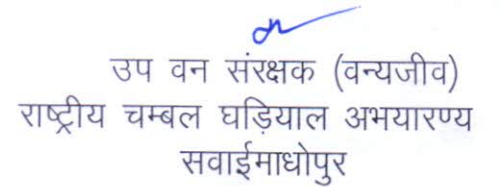 उप वन संरक्षक (वन्यजीव)
राष्ट्रीय चम्बल घड़ियाल अभयारण्य
सवाईमाधोपुर